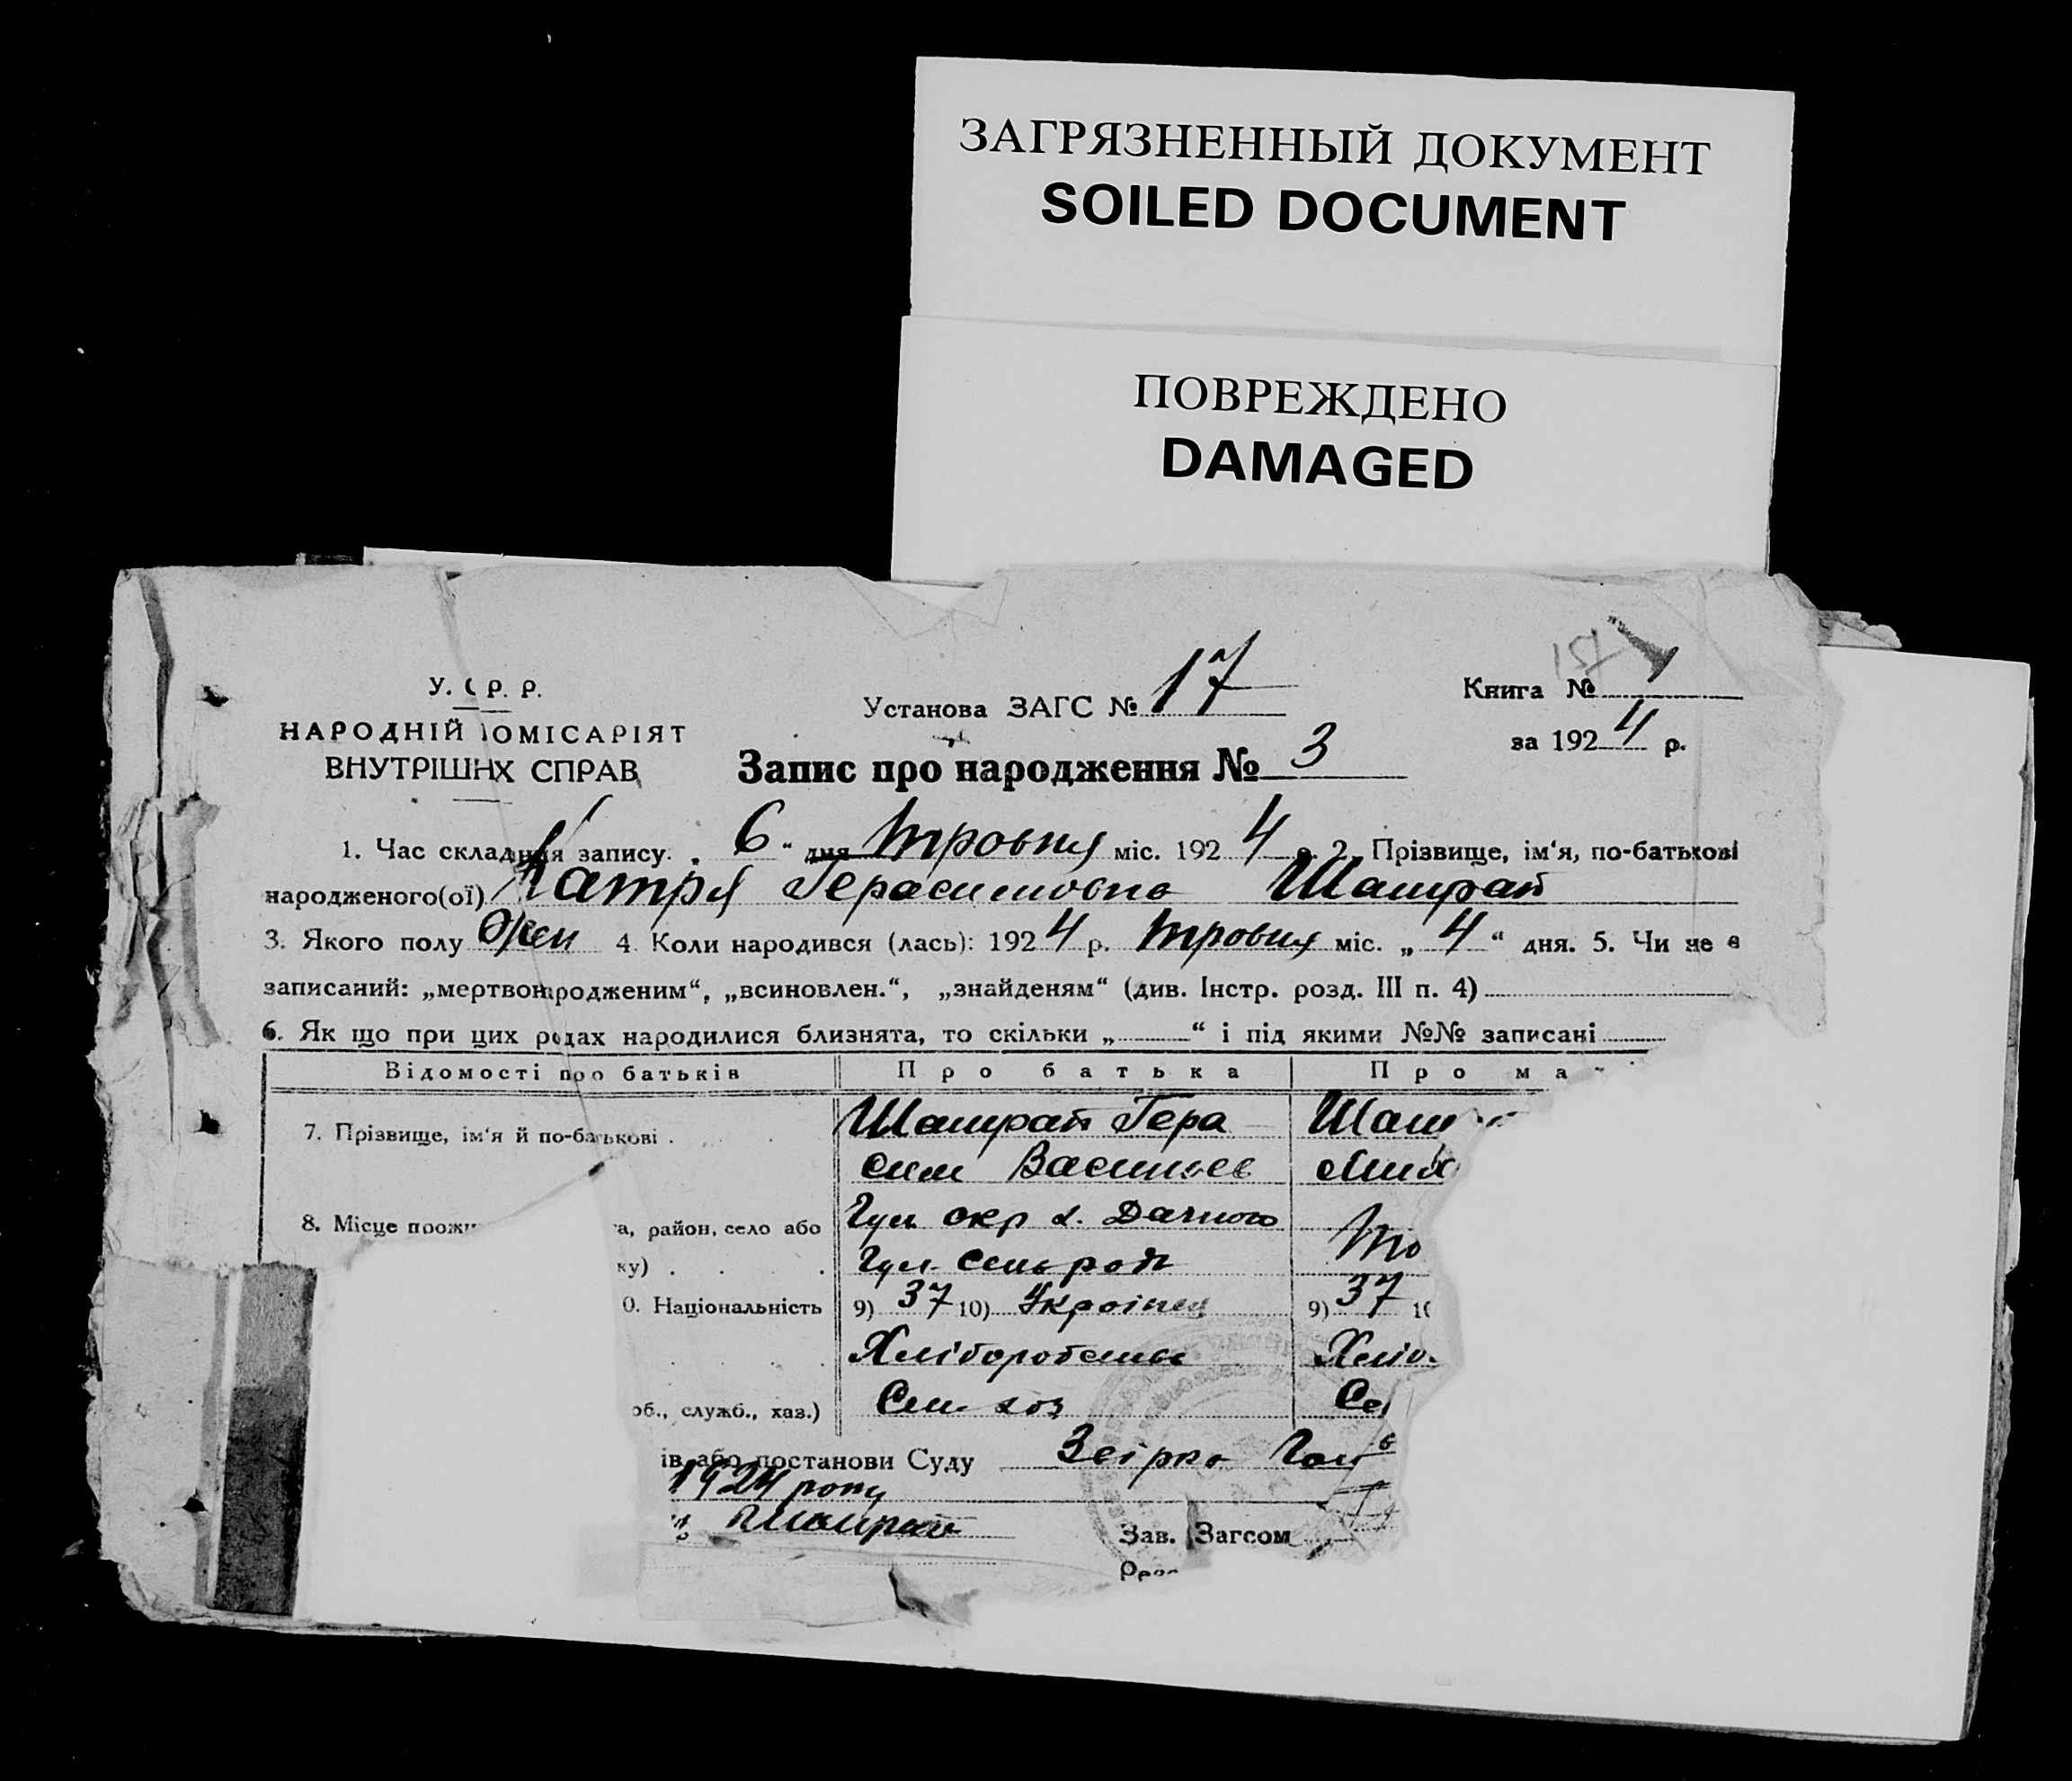 ЗАГРЯЗНЕННЫЙ ДОКУМЕНТ
SOILED DOCUMENT
ПОВРЕЖДЕНО
DAMAGED
У. С Р. Р.
НАРОДНІЙ ОМІСАРІЯТ
ВНУТРІШНХ СПРАВ
Установа ЗАГС № 17
Книга № 1
за 1924 р.
Запис про народження № 3
1. Час складння запису. „ 6 “ дня травня міс. 1924 р. 2. Прізвище, ім‘я, по-батькові
народженого(ої) Катря Герасимовна Шапрай
3. Якого полу жен 4 Коли народився (лась): 1924 р. травня міс. „ 4 “ дня. 5. Чи не є
записаний: „мертвонародженим“, „всиновлен.“, „знайденям“ (див. Інстр. розд. III п. 4)
6. Як що при цих родах народилися близнята, то скільки „ “ і під якими №№ записані
Відомості про батьків Про батька Про ма
7. Прізвище, ім‘я й по-батькові . Шапрай Гера
сим Васильев
8. Місце прожи а, район, село або окр х. Дачного
ку) .
0. Національність 9) 37 10) Україنець 9) 37 10
Хліборобство
об., служб., хаз.) Сел. хоз Се
ів або постанови Суду
1924 року
Шапрай
Зав. Загсом